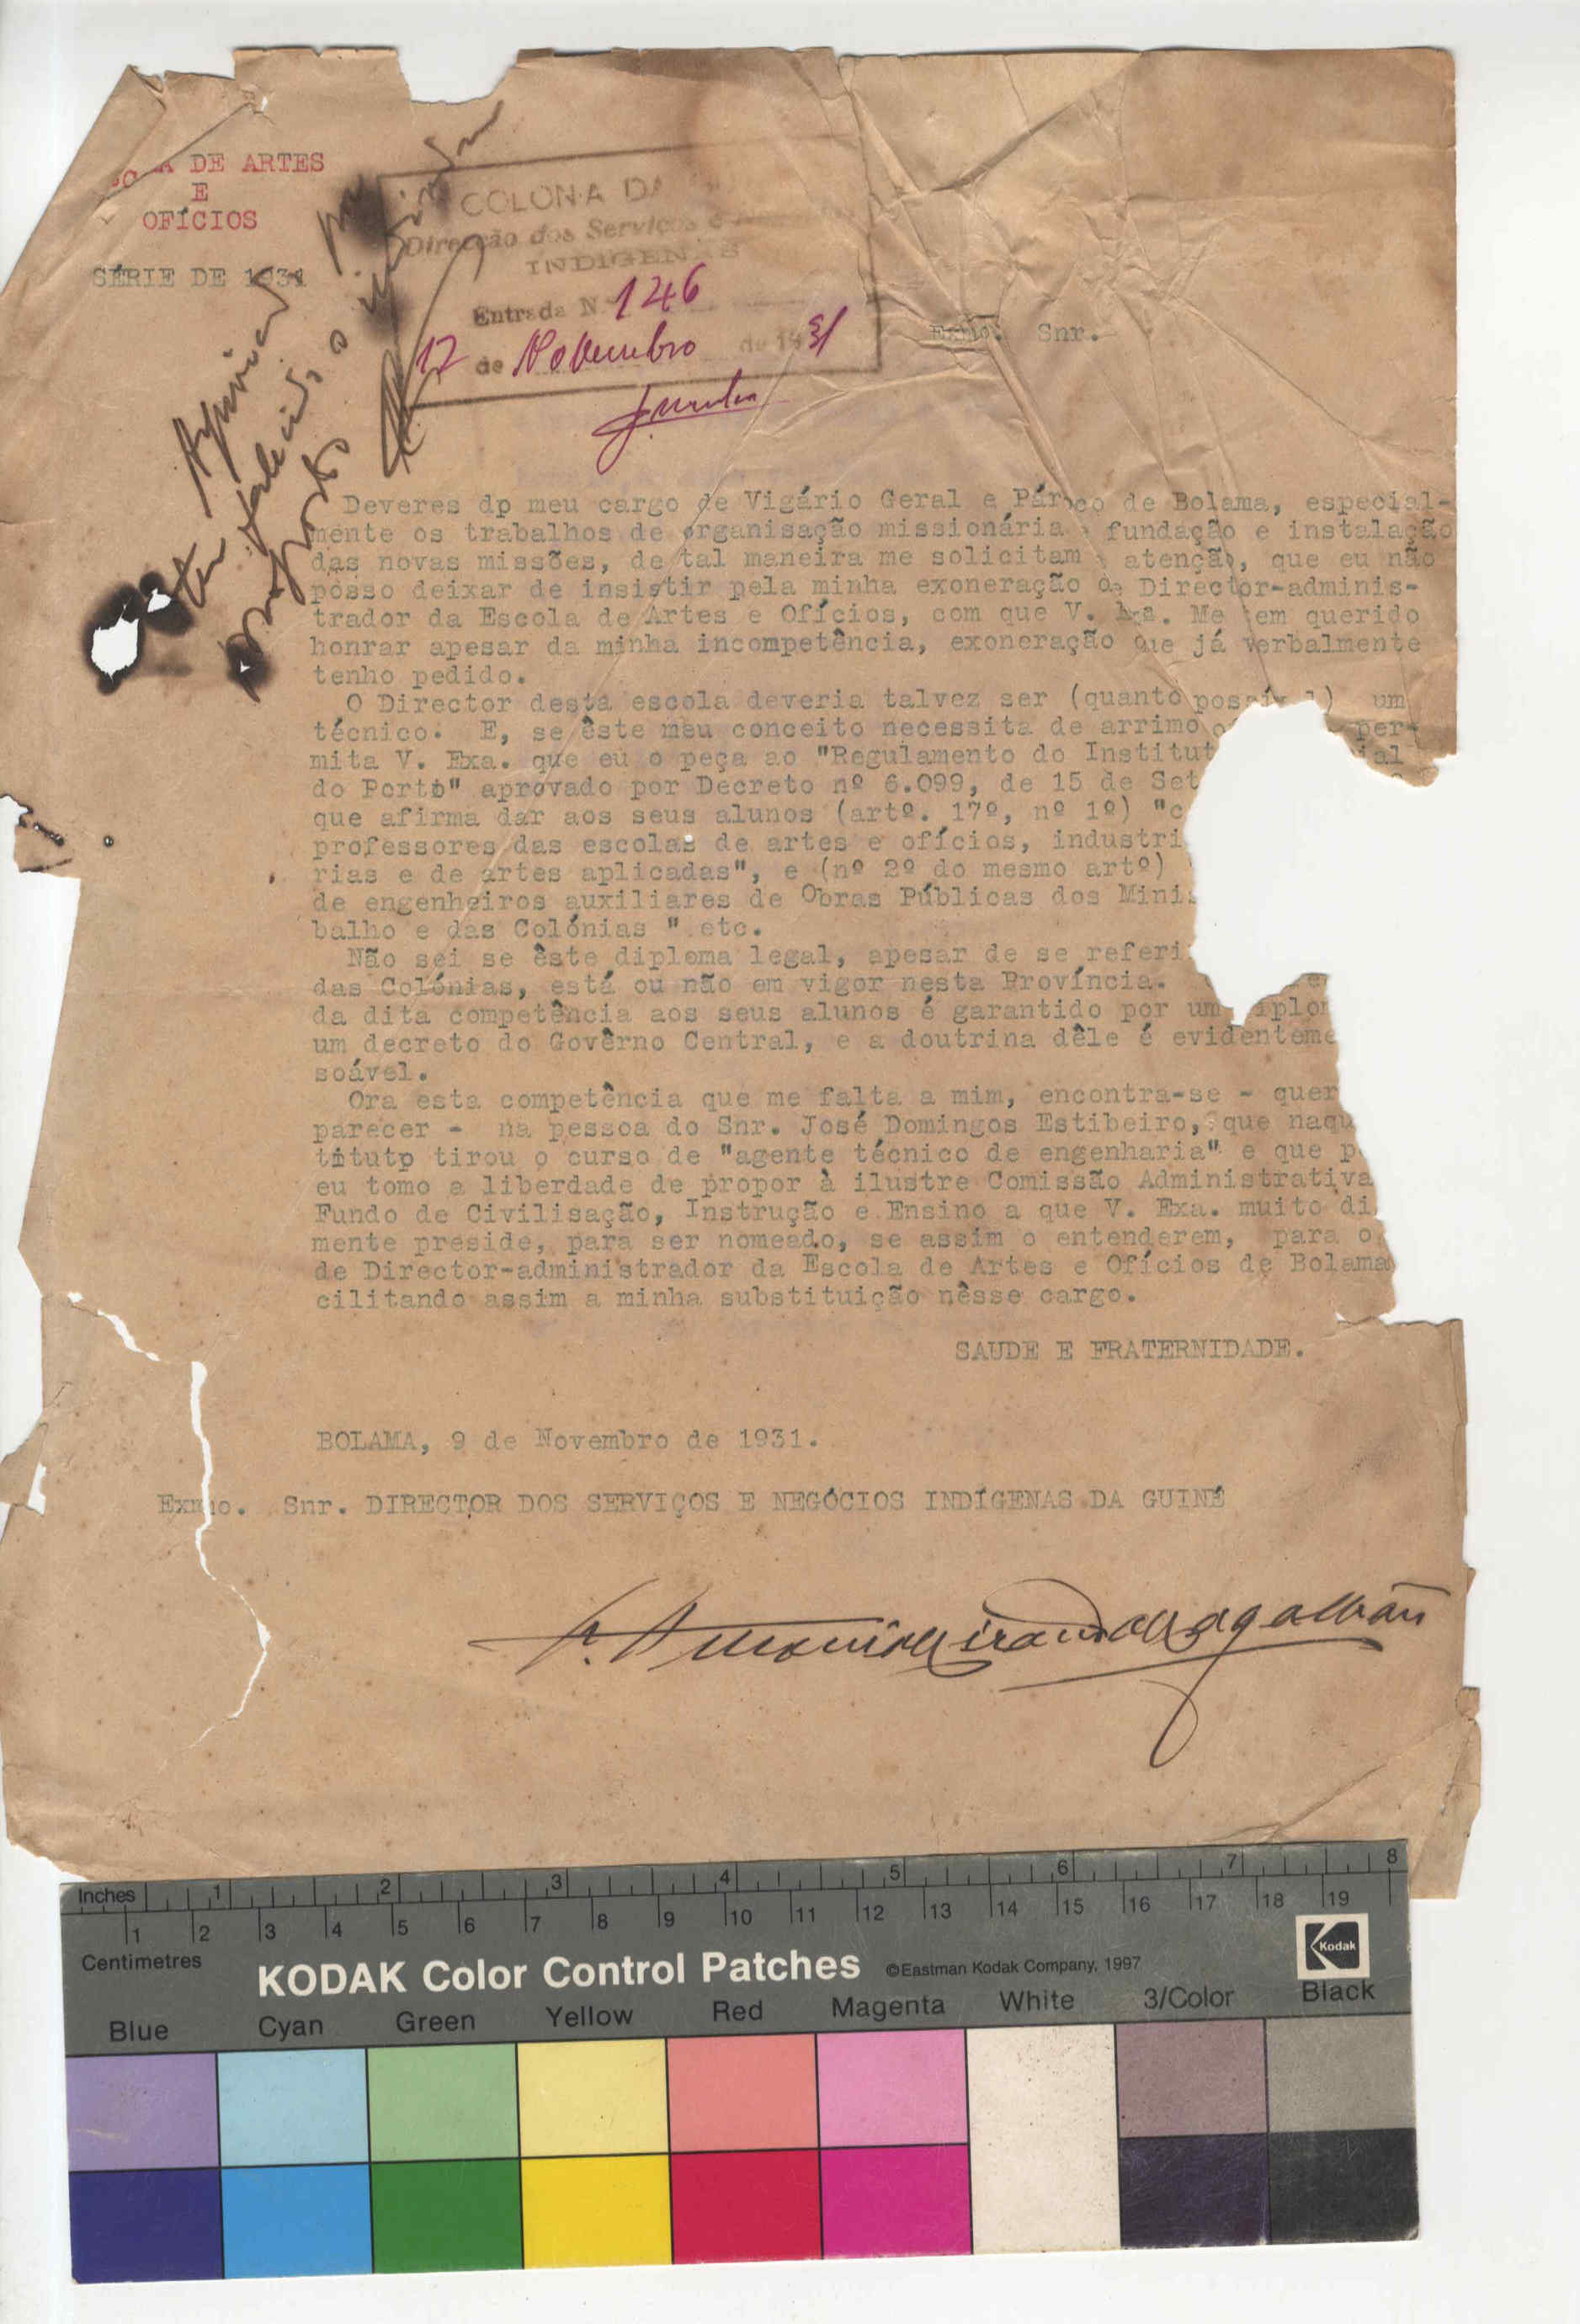 A DE ARTES
E
OFÍCIOS
SÉRIE DE 1931
COLONIA DA
Direcção dos Serviços e
INDIGENAS
Entrada N. 146
12 de Novembro de 1931
Exmo. Snr.
Deveres dp meu cargo de Vigário Geral e Pároco de Bolama, especial-
mente os trabalhos de organisação missionária, fundação e instalação
das novas missões, de tal maneira me solicitam a atenção, que eu não
posso deixar de insistir pela minha exoneração de Director-adminis-
trador da Escola de Artes e Ofícios, com que V. Exa. Me tem querido
honrar apesar da minha incompetência, exoneração que já verbalmente
tenho pedido.
O Director desta escola deveria talvez ser (quanto possível) um
técnico. E, se êste meu conceito necessita de arrimo per-
mita V. Exa. que eu o peça ao "Regulamento do Institut ial
do Porto" aprovado por Decreto nº 6.099, de 15 de Set
que afirma dar aos seus alunos (artº. 17º, nº 1º) "c
professores das escolas de artes e ofícios, industri
rias e de artes aplicadas", e (nº 2º do mesmo artº)
de engenheiros auxiliares de Obras Públicas dos Minis
balho e das Colónias " etc.
Não sei se êste diploma legal, apesar de se referi
das Colónias, está ou não em vigor nesta Província. e
da dita competência aos seus alunos é garantido por um diplom
um decreto do Govêrno Central, e a doutrina dêle é evidenteme
soável.
Ora esta competência que me falta a mim, encontra-se - quer
parecer - na pessoa do Snr. José Domingos Estibeiro, que naqu
tituto tirou o curso de "agente técnico de engenharia" e que p
eu tomo a liberdade de propor à ilustre Comissão Administrativa
Fundo de Civilisação, Instrução e Ensino a que V. Exa. muito di
mente preside, para ser nomeado, se assim o entenderem, para o
de Director-administrador da Escola de Artes e Ofícios de Bolama
cilitando assim a minha substituição nêsse cargo.
SAUDE E FRATERNIDADE.
BOLAMA, 9 de Novembro de 1931.
Exmo. Snr. DIRECTOR DOS SERVIÇOS E NEGÓCIOS INDÍGENAS DA GUINÉ
P. António Miranda Magalhães
Inches 1 2 3 4 5 6 7 8
1 2 3 4 5 6 7 8 9 10 11 12 13 14 15 16 17 18 19
Centimetres
KODAK Color Control Patches ©Eastman Kodak Company, 1997 Kodak
Blue Cyan Green Yellow Red Magenta White 3/Color Black